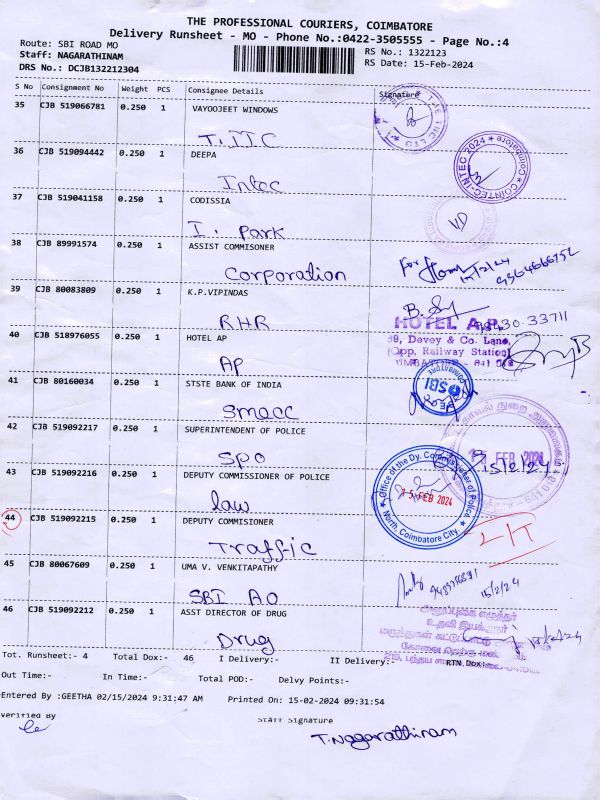 THE PROFESSIONAL COURIERS, COIMBATORE
Delivery Runsheet - MO - Phone No.:0422-3505555 - Page No.:4
Route: SBI ROAD MO
RS No.: 1322123
Staff: NAGARATHINAM
RS Date: 15-Feb-2024
DRS No.: DCJB132212304
S No Consignment No Weight PCS Consignee Details Signature
35 CJB 519066781 0.250 1 VAYOOJEET WINDOWS
T.IIC
36 CJB 519094442 0.250 1 DEEPA
Intec
COINTEC-INTEC 2024 * Coimbatore *
37 CJB 519041158 0.250 1 CODISSIA
I. Park
38 CJB 89991574 0.250 1 ASSIST COMMISONER
Corporation
15/2/24
39 CJB 80083809 0.250 1 K.P.VIPINDAS
RHR
40 CJB 518976055 0.250 1 HOTEL AP
AP
HOTEL A.P.
39, Devey & Co. Lane,
(Opp, Railway Station)
41 CJB 80160034 0.250 1 STSTE BANK OF INDIA
smecc
SBI
42 CJB 519092217 0.250 1 SUPERINTENDENT OF POLICE
SPO
15 FEB 2024
15/2/24
43 CJB 519092216 0.250 1 DEPUTY COMMISSIONER OF POLICE
law
Office of the Dy. Commissioner of Police,
15 FEB 2024
North, Coimbatore City.
44 CJB 519092215 0.250 1 DEPUTY COMMISIONER
Traffic
45 CJB 80067609 0.250 1 UMA V. VENKITAPATHY
SBI AO
15/2/24
46 CJB 519092212 0.250 1 ASST DIRECTOR OF DRUG
Drug
உதவி இயக்குநர்
Tot. Runsheet:- 4 Total Dox:- 46 I Delivery:- II Delivery:- RTN Dox:-
Out Time:- In Time:- Total POD:- Delvy Points:-
Entered By :GEETHA 02/15/2024 9:31:47 AM Printed On: 15-02-2024 09:31:54
Verified By Staff Signature
T.Nagarathinam